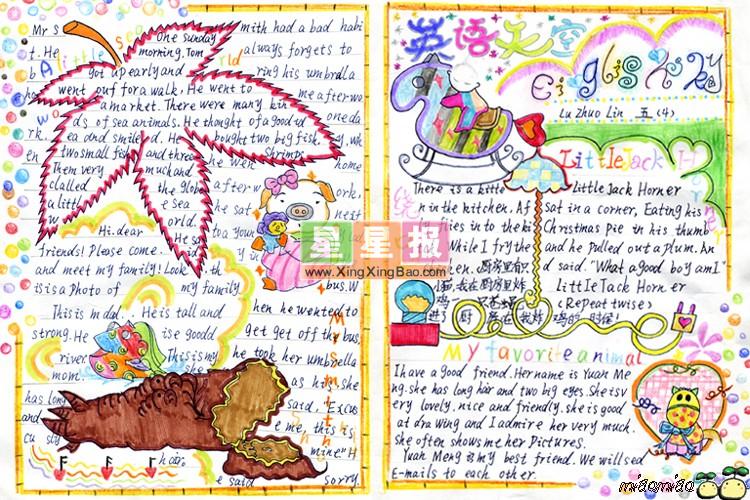 One sunday
morning, Tom
got up early and
went out for a walk. He went to
a market. There were many kin
ds of sea animals. He thought of a good id
ea and smiled. He bought two big fish,
two small fish and three Shrimps
them very much and
called the globe
a little sea
world.
Mr S mith had a bad habi
t. He always forgets to
b ring his umbrella
me after wo
rk. one da
y, wh
en he wen
after w ork,
he sat nest
to a youn
bus. W
hen he wanted to
get off the bus,
he took her umbrella
as his, she
said, "Excus
e me, this is
mine" H
e said sorry.
Mr Smith
Hi, dear
friends! Please come
and meet my family! Look, th
is is a Photo of my family
This is my dad. He is tall and
strong. He is a good d
river
This is my
mom.
has long
and
hair.
英语天空
English
Lu Zhuo Lin 五(4)
Little Jack Horner
Little Jack Horner
sat in a corner, Eating his
Christmas Pie in his thumb
and he pulled out a plum. An
d said. "What a good boy am I"
Little Jack Horner
(Repeat twise)
绕
There is a kitte
n in the kitchen. A f
ly flies in to the ki
While I fry the
厨房里有
小猫,我在厨房里炸
进厨
My favorite animal
I have a good friend. Her name is Yuan Me
ng. she has long hair and two big eyes. She is v
ery lovely. nice and friendly. she is good
at drawing and I admire her very much.
She often shows me her Pictures.
Yuan Meng is my best friend. We will sed
E-mails to each other.
星星报
www.XingXingBao.com
miaomiao